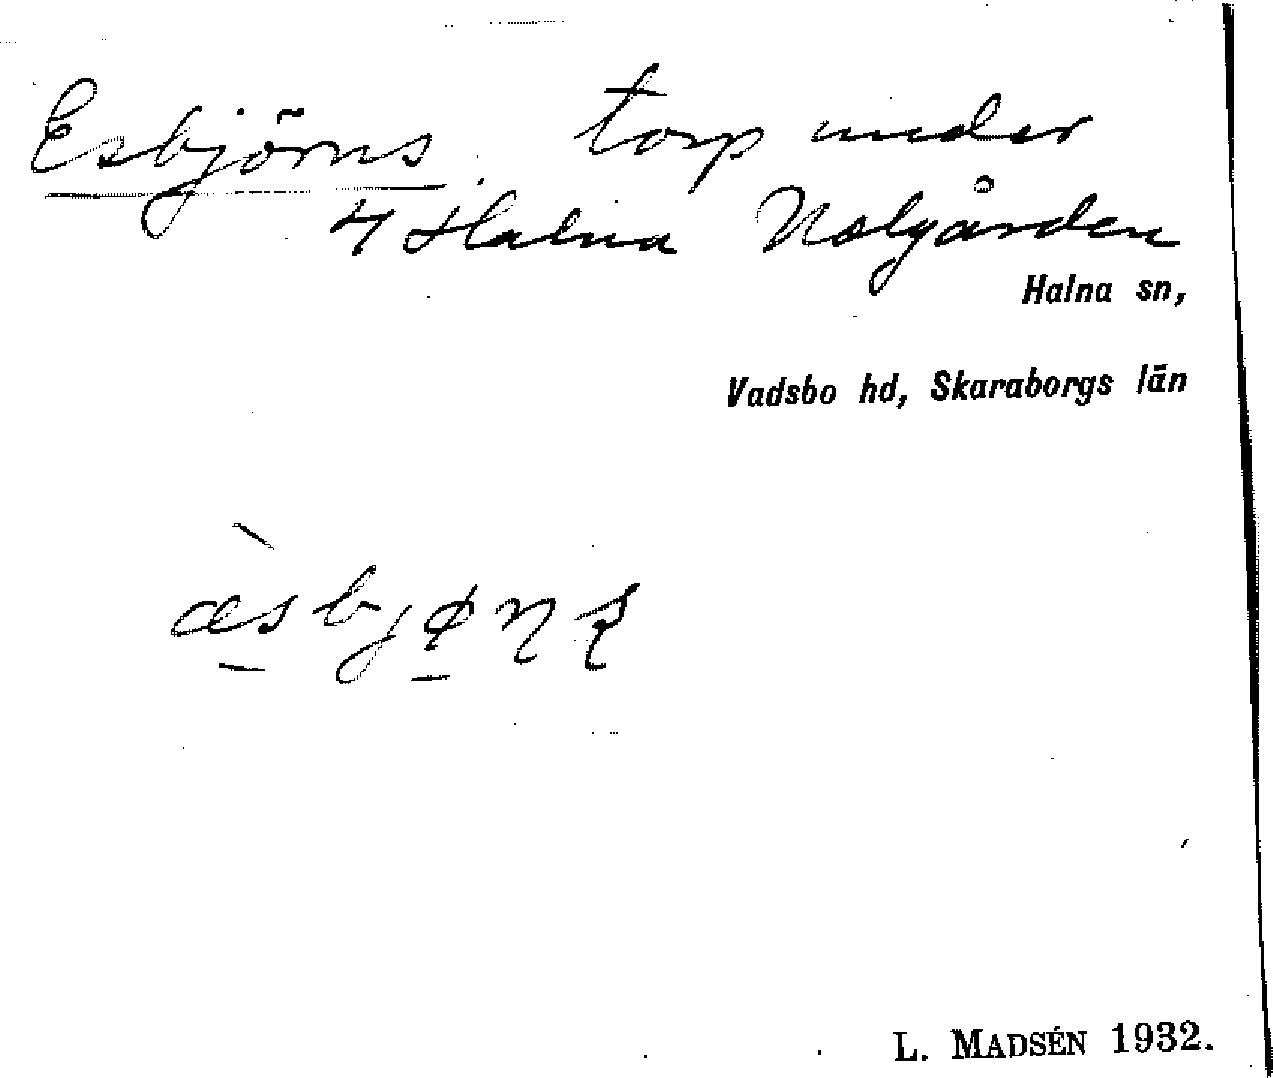 Esbjörns torp under
4 Halna Nolgården
Halna sn,
Vadsbo hd, Skaraborgs län
æ̀sbjøɳʂ
L. MADSÉN 1932.